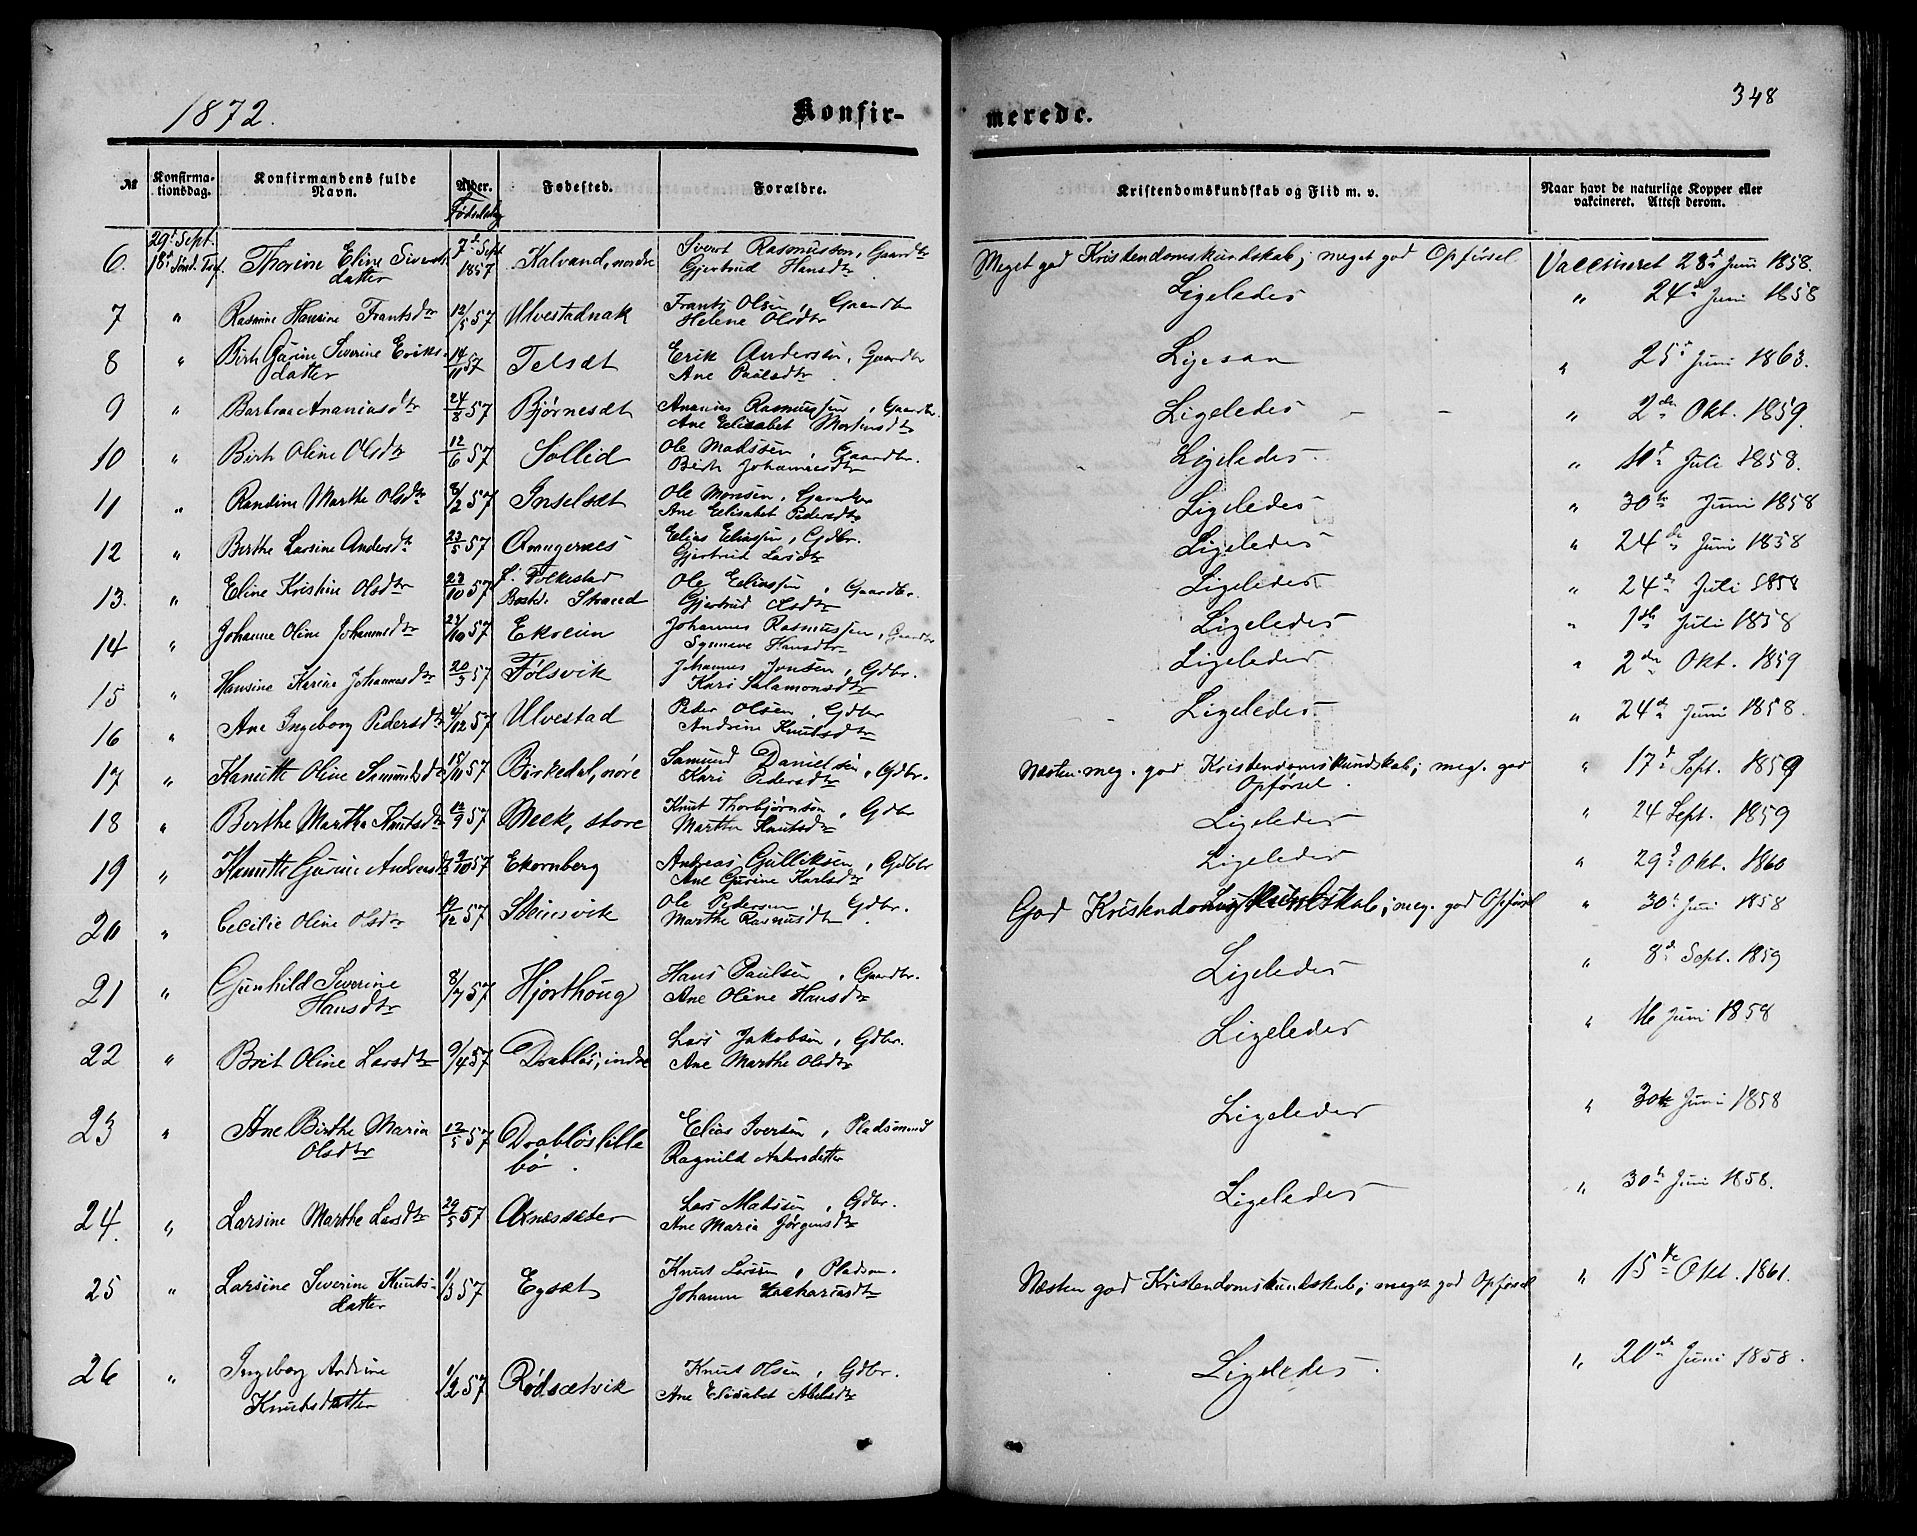 1872.
Konfir-
merede.
348
№
Konfirma-
tionsdag.
Konfirmandens fulde
Navn.
Alder.
Fødselsdag
Fødested.
Forældre.
Kristendomskundskab og Flid m. v.
Naar havt de naturlige Kopper eller
vakcineret. Attest derom.
6. 29' Sept. 18' Sønd. Tref. Thorine Eline Siverts-
datter 7' Sept 1857 Kalvand, nordre Sivert Rasmussen, Gaardbr
Gjertrud Hansdtr Meget god Kristendomskundskab; meget god Opførsel Vaccineret 28' Juni 1858.
7 " Rasmine Hansine Frantsdtr 12/5 57 Ulvestadnak Frants Olsen, Gaardbr
Helene Olsdtr Ligeledes " 24de Juni 1858
8 " Birth Gurine Severine Eriks-
datter 14/11 57 Telsæt Erik Andersen, Gaardbr
Ane Paulsdtr Ligesaa " 25' Juni 1863.
9 " Barbraa Ananiasdtr 24/8 57 Bjørnesæt Ananias Rasmussen, Gaardbr.
Ane Elisabet Mortensdtr Ligeledes - - " 2den Okt. 1859.
10 " Birth Oline Olsdtr 12/6 57 Sollid Ole Madssen, Gaardbr.
Birth Johannesdtr Ligeledes " 11' Juli 1858.
11 " Randine Marthe Olsdtr 8/2 57 Inselsæt Ole Monsen, Gaardbr
Ane Elisabet Pedersdtr Ligeledes " 30te Juni 1858
12 " Berthe Larsine Andersdtr 23/5 57 Amugernes Elias Eliassen, Gdbr.
Gjertrud Larsdtr Ligeledes " 24de Juni 1858
13. " Eline Kristine Olsdtr 23/10 57 f. Folkestad
Bostd. Strand Ole Eliassen, Gaardbr.
Gjertrud Olsdtr Ligeledes " 24de Juli 1858
14 " Johanne Oline Johannesdtr 21/10 57 Ekrein Johannes Rasmussen, Gaardbr
Synnøve Hansdtr Ligeledes " 1ste Juli 1858
15 " Hansine Karine Johannesdtr 20/5 57 Følsvik Johannes Jonsen, Gdbr.
Kari Salamonsdtr Ligeledes " 2den Okt. 1859
16 " Ane Ingeborg Pedersdtr 4/12 57 Ulvestad Peder Olsen, Gdbr
Andrine Knutsdtr Ligeledes " 24de Juni 1858.
17 " Kanutte Oline Samundsdtr 18/11 57 Birkedal, nøre Samund Danielsen, Gdbr.
Kari Pedersdtr Næsten meg. god Kristendomskundskab; meg. god
Opførsel. " 17' Sept. 1859
18 " Berthe Marthe Knutsdtr 12/9 57 Mek, store Knut Thorbjørnsen, Gdbr
Marthe Knutsdtr Ligeledes " 24 Sept. 1859
19 " Kanutte Gurine Andreasdtr 9/10 57 Ekornberg Andreas Gulliksen, Gdbr
Ane Gurine Karlsdtr Ligeledes " 29' Okt. 1860
20 " Cecilie Oline Olsdtr 14/12 57 Steinsvik Ole Pedersen, Gdbr.
Marthe Rasmusdtr God Kristendomskundskab; meg. god Opførsel " 30' Juni 1858
21 " Gunhild Severine
Hansdtr 8/7 57 Hjorthoug Hans Paulsen, Gaardbr.
Ane Oline Hansdtr Ligeledes " 8de Sept. 1859
22 " Brit Oline Larsdtr 9/4 57 Drabløs, indre Lars Jakobsen, Gdbr.
Ane Marthe Olsdtr Ligeledes " 16 Juni 1858
23 " Ane Birthe Maria
Olsdtr 12/5 57 Drabløslille
bø. Elias Iversen, Pladsmand
Ragnild Andersdatter Ligeledes " 30te Juni 1858
24. " Larsine Marthe Larsdtr 29/5 57 Øxnesæter Lars Madssen, Gdbr.
Ane Maria Jørgensdtr Ligeledes " 30te Juni 1858.
25 " Larsine Severine Knuts-
datter 1/3 57 Egset Knut Larsen, Pladsm.
Johanne Zachariasdtr Næsten god Kristendomskundskab; meget god Opførsel " 15de Okt. 1861.
26 " Ingeborg Andrine
Knutsdatter 1/2 57 Rødsætvik Knut Olsen, Gdbr.
Ane Elisabet Abelsdtr Ligeledes. " 20de Juni 1858.